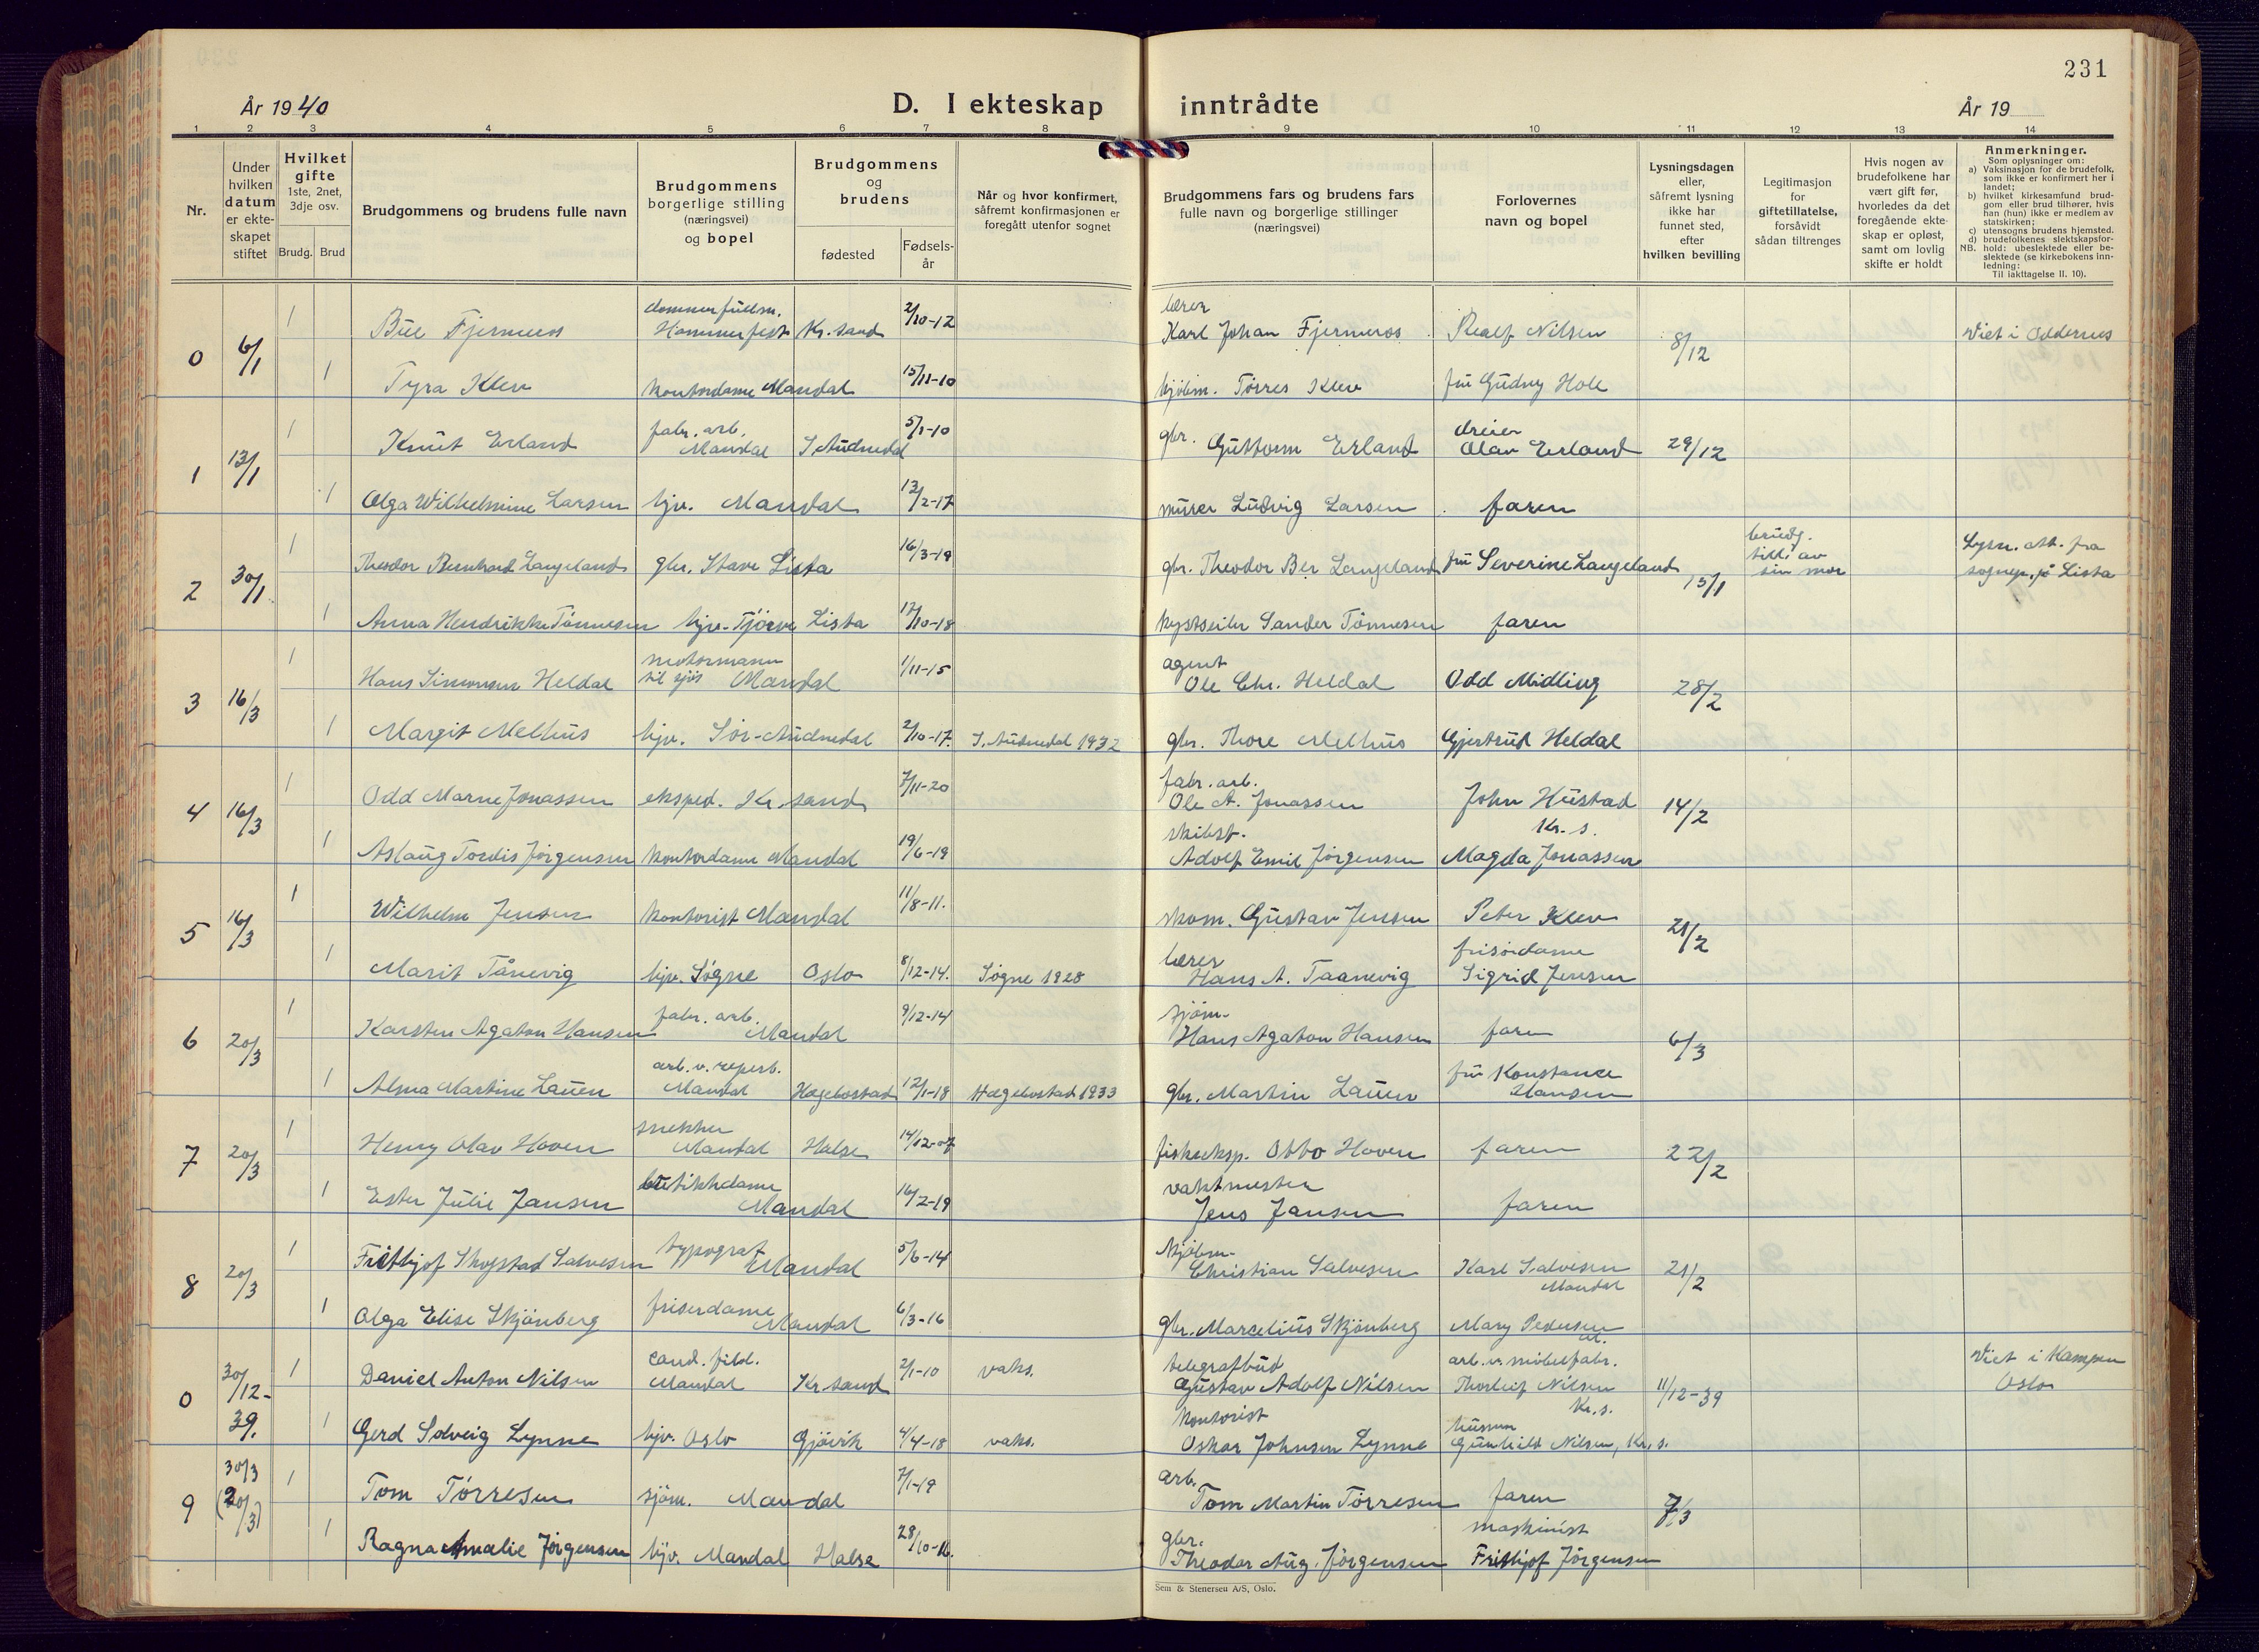 231
År 1940
D. I ekteskap inntrådte
År 19
1 2 3 4 5 6 7 8 9 10 11 12 13 14
Nr.
Under hvilken datum er ekteskapet stiftet
Hvilket gifte 1ste, 2net, 3dje osv.
Brudg. Brud
Brudgommens og brudens fulle navn
Brudgommens borgerlige stilling (næringsvei) og bopel
Brudgommens og brudens
fødested
Fødselsår
Når og hvor konfirmert, såfremt konfirmasjonen er foregått utenfor sognet
Brudgommens fars og brudens fars fulle navn og borgerlige stillinger (næringsvei)
Forlovernes navn og bopel
Lysningsdagen eller, såfremt lysning ikke har funnet sted, efter hvilken bevilling
Legitimasjon for giftetillatelse, forsåvidt sådan tiltrenges
Hvis nogen av brudefolkene har vært gift før, hvorledes da det foregående ekteskap er opløst, samt om lovlig skifte er holdt
Anmerkninger.
Som oplysninger om:
a) Vaksinasjon for de brudefolk, som ikke er konfirmert her i landet;
b) hvilket kirkesamfund brudgom eller brud tilhører, hvis han (hun) ikke er medlem av statskirken;
c) utensogns brudens hjemsted.
d) brudefolkenes slektskapsforhold: ubeslektede eller beslektede (se kirkebokens innledning:
NB. Til iakttagelse II. 10).
0 6/1 1 Bue Fjermeros dommerfullm. Hammerfest Kr.sand 2/10-12 lærer Karl Johan Fjermeros Realf Nilsen 8/12 Viet i Oddernes
1 Tyra Klev kontordame Mandal 15/11-10 kjøbm. Tørres Klev fru Gudny Holl
1 13/1 1 Knut Erland fabr. arb. Mandal S. Audnedal 5/1-10 gbr. Guttorm Erland dreier Olav Erland 29/12
1 Olga Wilhelmine Larsen hjv. Mandal 13/2-17 murer Ludvig Larsen faren
2 30/1 1 Theodor Bernhard Langeland gbr. Stave Lista 16/3-19 gbr. Theodor Ber Langeland fru Severine Langeland 15/1 brudg. till. av sin mor Lysn. att. fra sognepr. på Lista
1 Anna Hendrikke Tønnesen hjv. Tjørve Lista 17/10-18 kystseiler Sander Tønnesen faren
3 16/3 1 Hans Simonsen Heldal motormann til sjøs Mandal 1/11-15 agent Ole Chr. Heldal Odd Midling 28/2
1 Margit Melhus hjv. Sør-Audnedal 2/10-17. S. Audnedal 1932 gbr. Thore Melhus Gjertrud Heldal
4 16/3 1 Odd Marne Jonassen eksped. Kr.sand 7/11-20 fabr. arb. Ole A. Jonassen John Hustad Kr. s. 14/2
1 Aslaug Tordis Jørgensen kontordame Mandal 19/6-19 skibsf. Adolf Emil Jørgensen Magda Jonassen
5 16/3 1 Wilhelm Jensen kontorist Mandal 11/8-11. skom. Gustav Jensen Peter Klev 21/2
1 Marit Tånevig hjv. Søgne Oslo 8/12-14. Søgne 1928 lærer Hans A. Taanevig frisørdame Sigrid Jensen
6 20/3 1 Karsten Agaton Hansen fabr. arb. Mandal 9/12-14 sjøm. Hans Agaton Hansen faren 6/3
1 Alma Martine Lauen arb. v. reperb. Mandal Hægebostad 12/1-18 Hægebostad 1933 gbr. Martin Lauen fru Konstance Hansen
7 20/3 1 Henry Olav Hoven snekker Mandal Halse 14/12-07 fiskeeksp. Otto Hoven faren 22/2
1 Ester Julie Jansen butikkdame Mandal 16/2-19 vaktmester Jens Jansen faren
8 20/3 1 Frithjof Skogstad Salvesen typograf Mandal 5/6-14 kjøbm. Christian Salvesen Karl Salvesen Mandal 21/2
1 Olga Elise Skjønberg friserdame Mandal 6/3-16 gbr. Marcelius Skjønberg Mary Pedersen
0 30/12-39. 1 Daniel Anton Nilsen cand. fild. Mandal Kr.sand 2/1-10 vaks. telegrafbud Gustav Adolf Nilsen arb. v. møbelfabr. Thorleif Nilsen Kr. s. 11/12-39 Viet i Kampen Oslo
1 Gerd Solveig Lynne hjv. Oslo Gjøvik 4/4-18 vaks. kontorist Oskar Johnsen Lynne husm. Gunhild Nilsen, Kr. s.
9 30/3 (20/3) 1 Tom Tørresen sjøm. Mandal 7/1-19 arb. Tom Martin Tørresen faren 7/3
1 Ragna Amalie Jørgensen hjv. Mandal Halse 28/10-16. gbr. Theodor Aug. Jørgensen maskinist Frithjof Jørgensen
Sem & Stenersen A/S, Oslo.